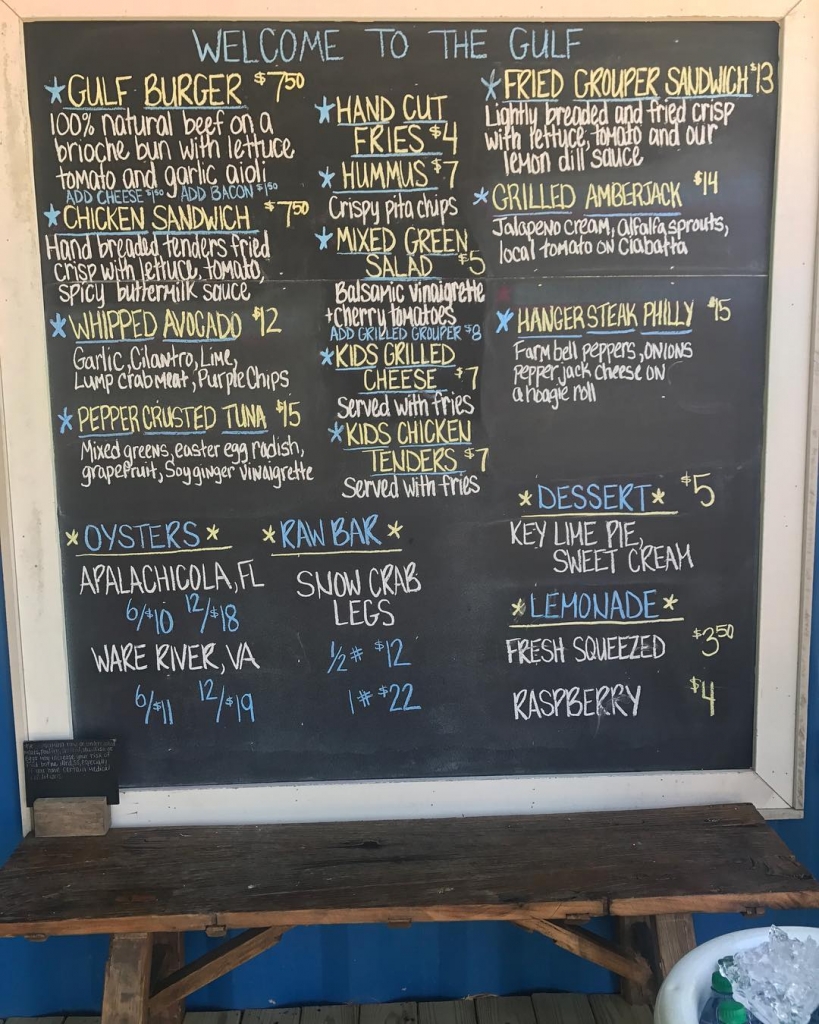 WELCOME TO THE GULF
* GULF BURGER $7.50
100% natural beef on a
brioche bun with lettuce
tomato and garlic aioli
ADD CHEESE $1.50 ADD BACON $1.50
* CHICKEN SANDWICH $7.50
Hand breaded tenders fried
crisp with lettuce, tomato,
spicy buttermilk sauce
* WHIPPED AVOCADO $12
Garlic, Cilantro, Lime,
Lump crab meat, Purple Chips
* PEPPER CRUSTED TUNA $15
Mixed greens, easter egg radish,
grapefruit, Soy ginger vinaigrette
* HAND CUT
FRIES $4
* HUMMUS $7
Crispy pita chips
* MIXED GREEN
SALAD $5
Balsamic vinaigrette
+ cherry tomatoes
ADD GRILLED GROUPER $8
* KIDS GRILLED
CHEESE $7
Served with fries
* KIDS CHICKEN
TENDERS $7
Served with fries
* FRIED GROUPER SANDWICH $13
Lightly breaded and fried crisp
with lettuce, tomato and our
lemon dill sauce
* GRILLED AMBERJACK $14
Jalapeno cream, alfalfa sprouts,
local tomato on Ciabatta
* HANGER STEAK PHILLY $15
Farm bell peppers, onions
pepper jack cheese on
a hoagie roll
* OYSTERS *
APALACHICOLA, FL
6/$10 12/$18
WARE RIVER, VA
6/$11 12/$19
* RAW BAR *
SNOW CRAB
LEGS
1/2 # $12
1 # $22
* DESSERT * $5
KEY LIME PIE,
SWEET CREAM
* LEMONADE *
FRESH SQUEEZED $3.50
RASPBERRY $4